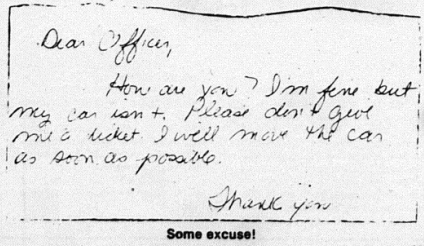 Dear Officer,
How are you? I'm fine but
my car isn't. Please don't give
me a ticket. I will move the car
as soon as possible.
Thank you
Some excuse!